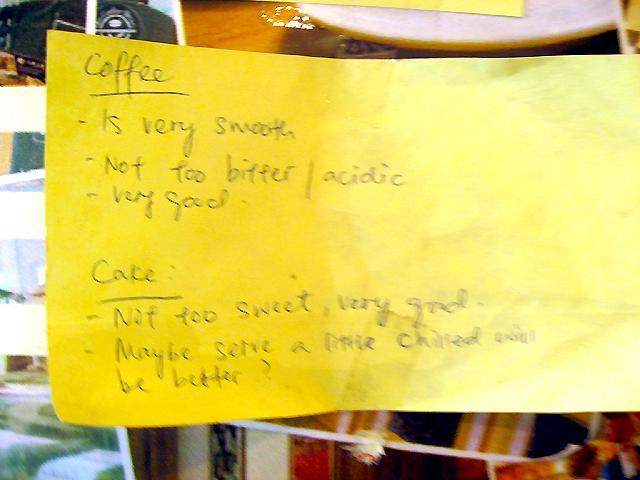 Coffee
- Is very smooth
- Not too bitter / acidic
- very good.
Cake:
- Not too sweet, very good.
- Maybe serve a little chilled will
be better?